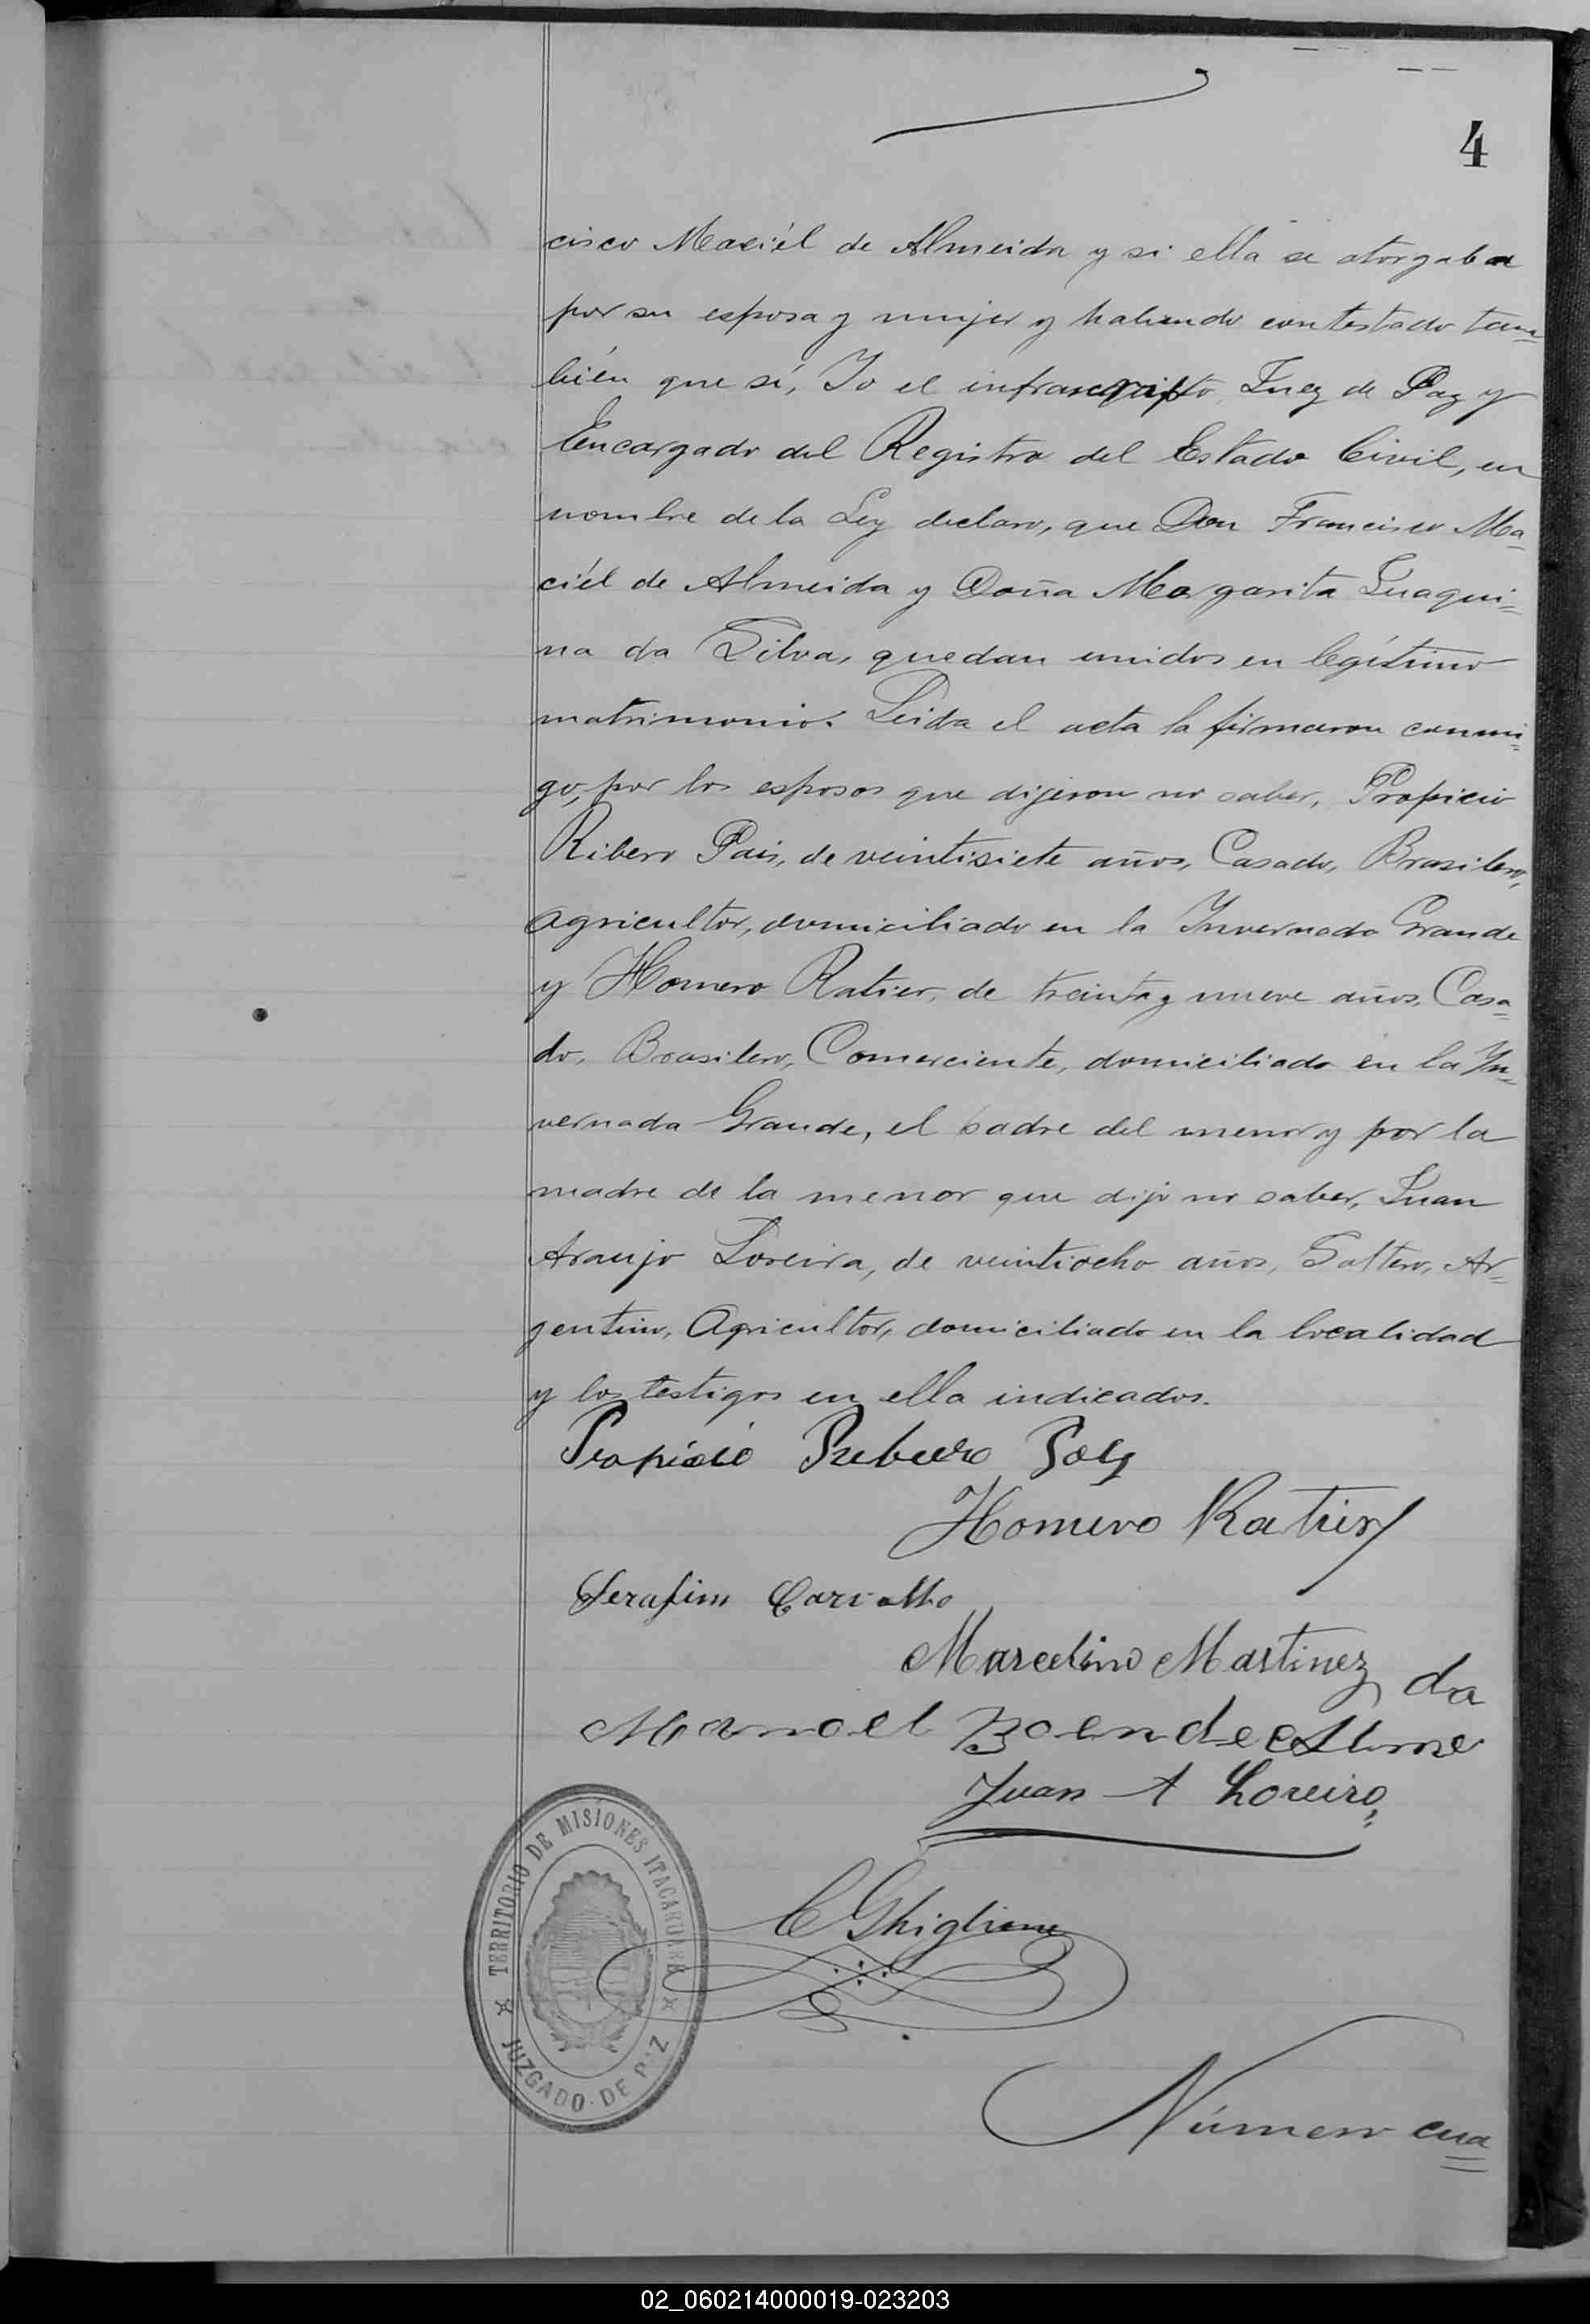 4
cisco Maciél de Almeida y si ella se otorgaba
por su esposa y mujer y habiendo contestado tam=
bién que sí, Yo el infrascripto Juez de Paz y
Encargado del Registro del Estado Civil, en
nombre de la Ley declaro, que Don Francisco Ma=
ciél de Almeida y Doña Margarita Juaqui=
na da Silva, quedan unidos en legítimo
matrimonio. Leida el acta la firmaron conmi=
go, por los esposos que dijeron no saber, Propicio
Ribero Pais, de veintisiete años, Casado, Brasilero,
agricultor, domiciliado en la Invernada Grande
y Homero Ratier, de treinta y nueve años, Casa=
do, Brasilero, Comerciente, domiciliado en la In=
vernada Grande, el padre del menor y por la
madre de la menor que dijo no saber, Juan
Araujo Loreira, de veintiocho años, Soltero, Ar=
gentino, Agricultor, domiciliado en la localidad
y los testigos en ella indicados.
Propicio
Homero Ratier
Serafim Carvalho
Marcelino Martinez
da
Manoel
Juan A Loreiro
C Ghiglione
TERRITORIO DE MISIONES ITACARUARE
JUZGADO DE PAZ
Número cua=
02_060214000019-023203